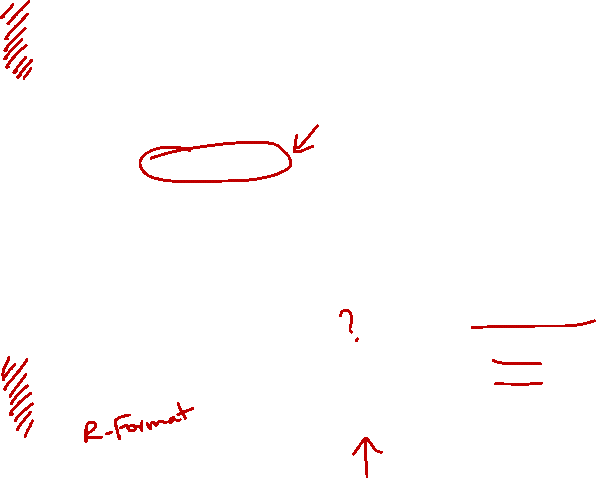 ?
R-Format